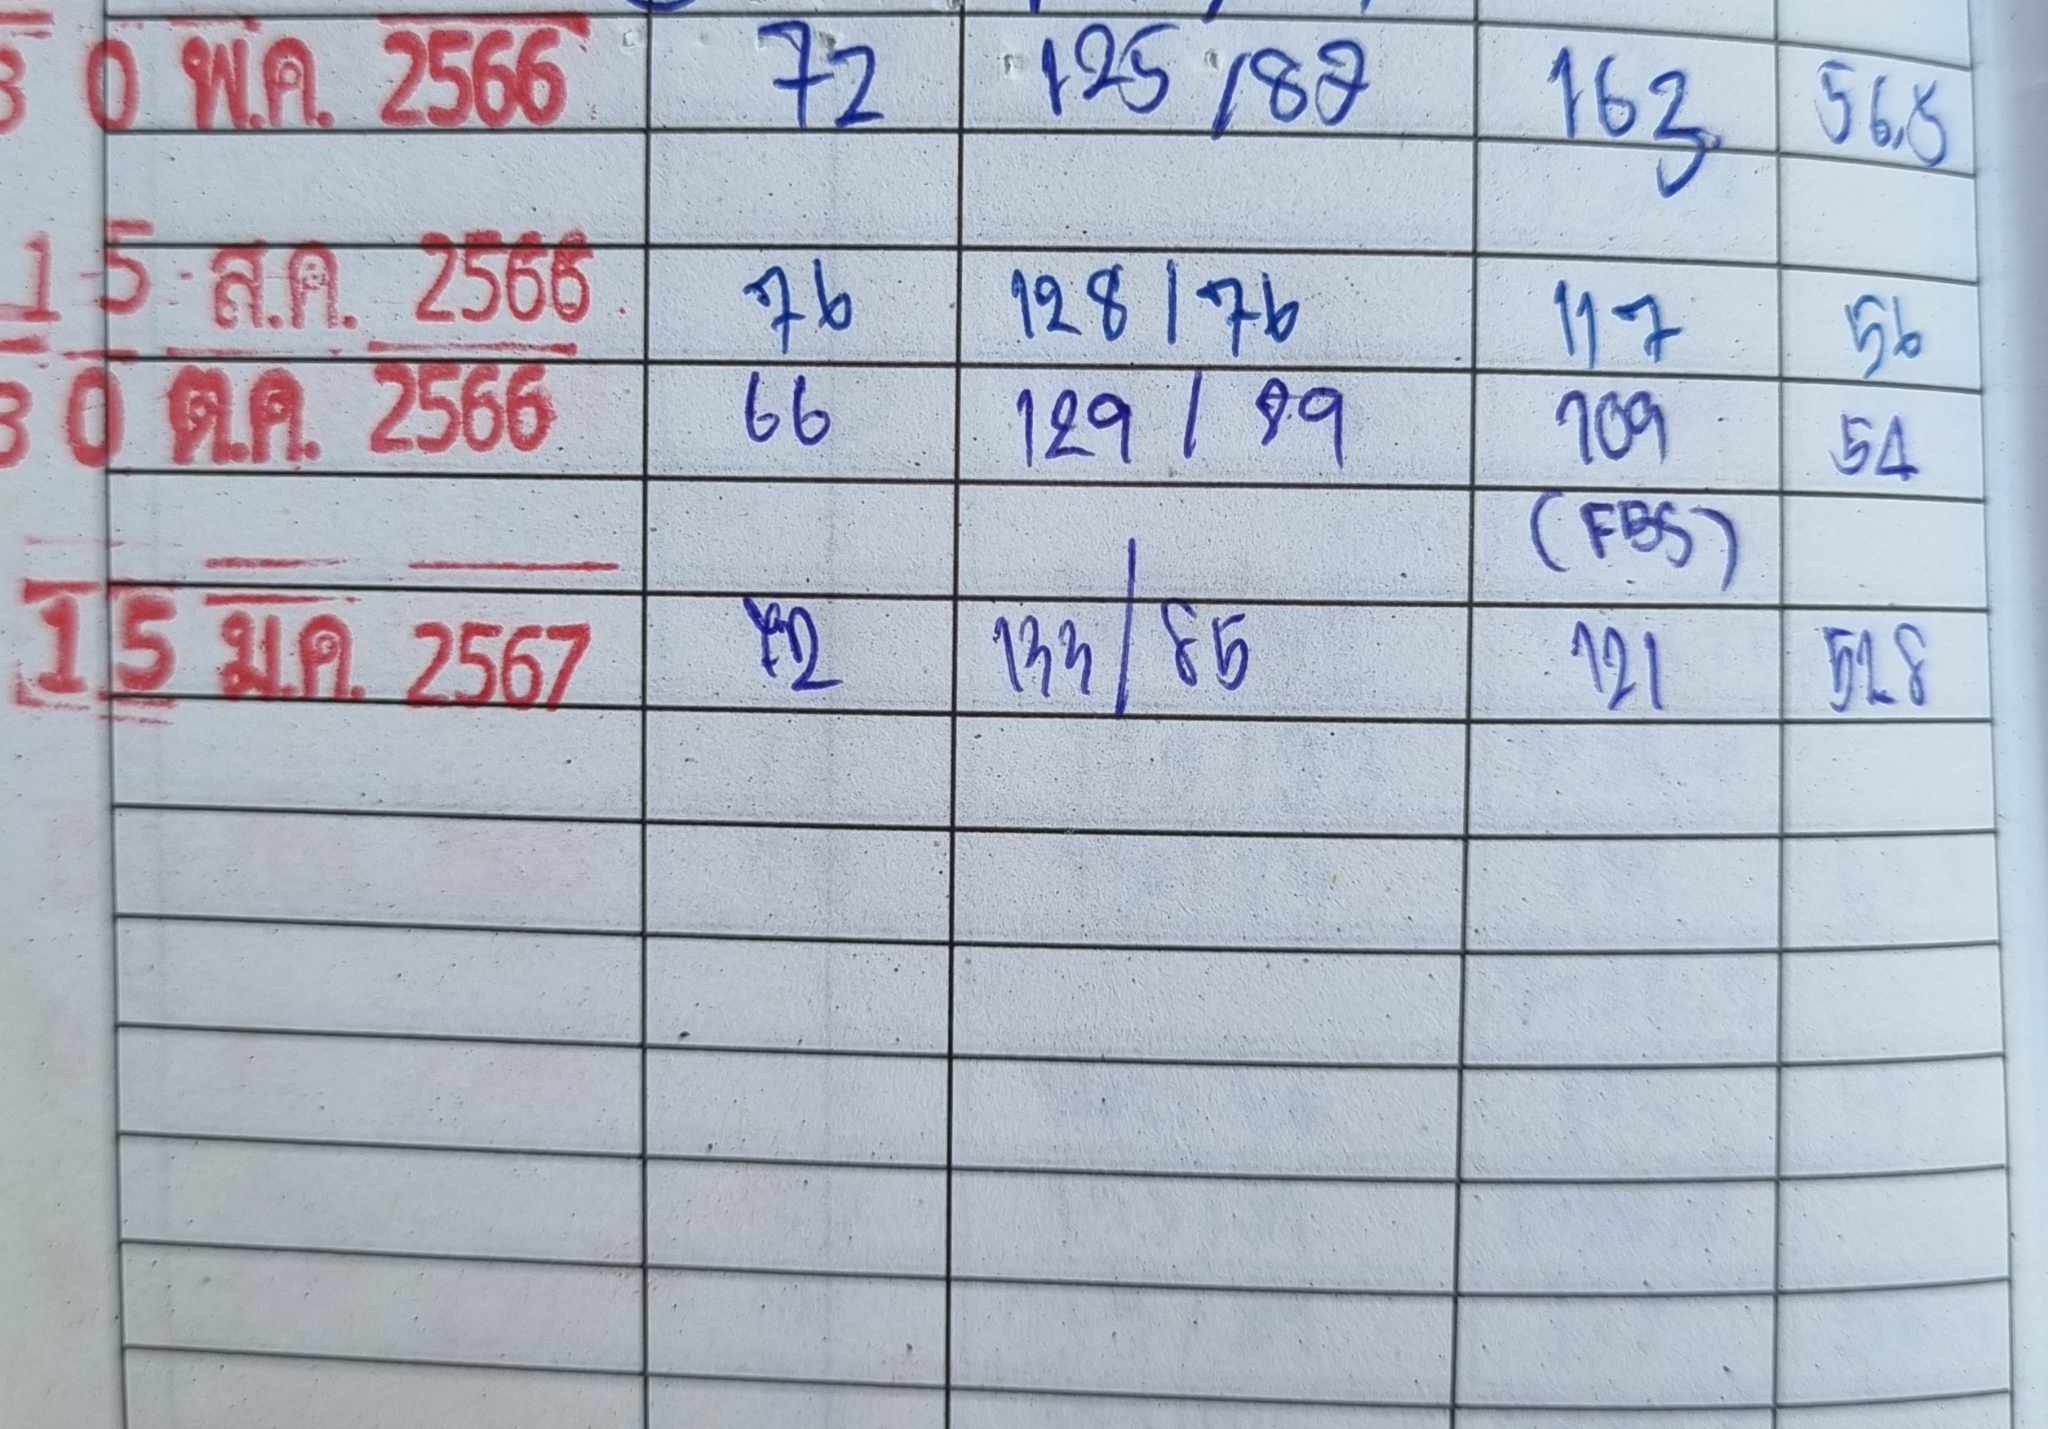 30 พ.ค. 2566 72 125/82 163 56.5
15 ส.ค. 2566 76 128/76 117 56
30 ต.ค. 2566 66 129/89 109 54
(FBS)
15 ม.ค. 2567 72 133/85 121 52.8